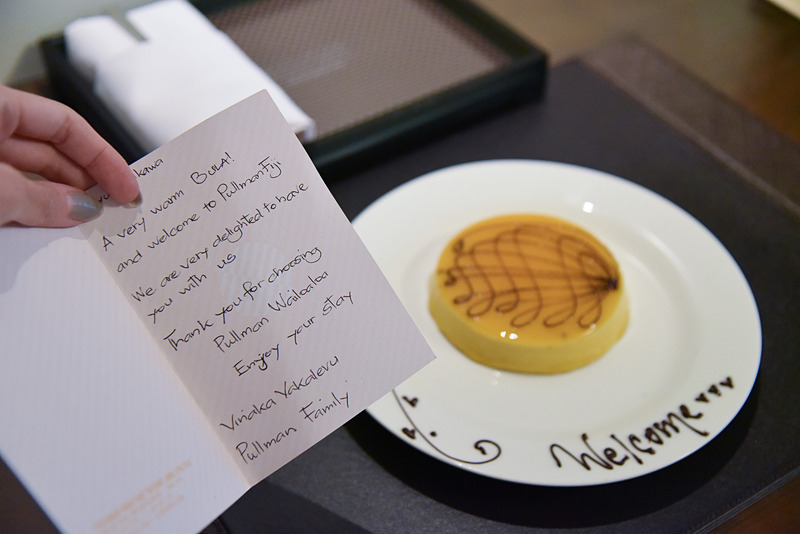 A very warm BULA!
and welcome to Pullman Fiji
We are very delighted to have
you with us
Thank you for choosing
Pullman Wailoaloa
Enjoy your stay
Vinaka Vakalevu
Pullman Family
Welcome